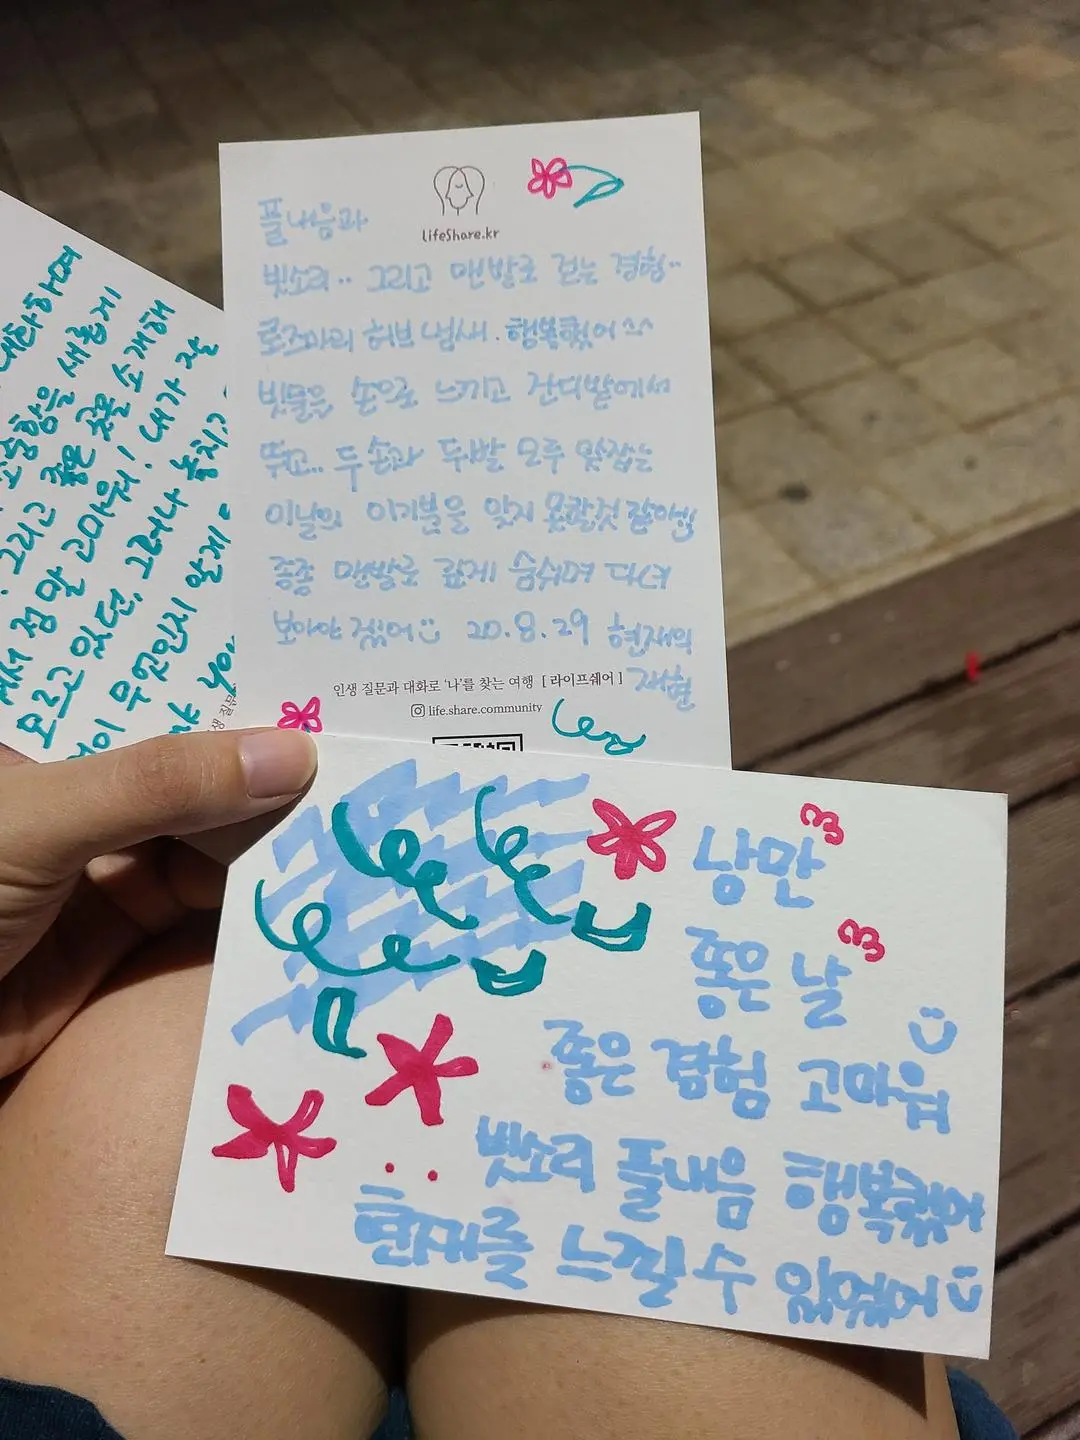 lifeShare.kr
풀내음과
빗소리.. 그리고 맨발로 걷는 경험..
로즈마리 허브 냄새. 행복했어^^
빗물을 손으로 느끼고 잔디밭에서
뛰고.. 두 손과 두발 모두 맞잡는
이날의 이기분을 잊지 못할것 같아
종종 맨발로 깊게 숨쉬며 다녀
보아야 겠어 20.8.29 현재의
재현
인생 질문과 대화로 '나'를 찾는 여행 [ 라이프쉐어 ]
life.share.community
하며
소중함을 새롭게
그리고 좋은 곳을 소개해
정말 고마워! 내가 잘
모르고 있던, 그러나 놓치
이 무엇인지 알게
낭만
좋은 날
좋은 경험 고마워
빗소리 풀내음 행복했어
현재를 느낄 수 있었어